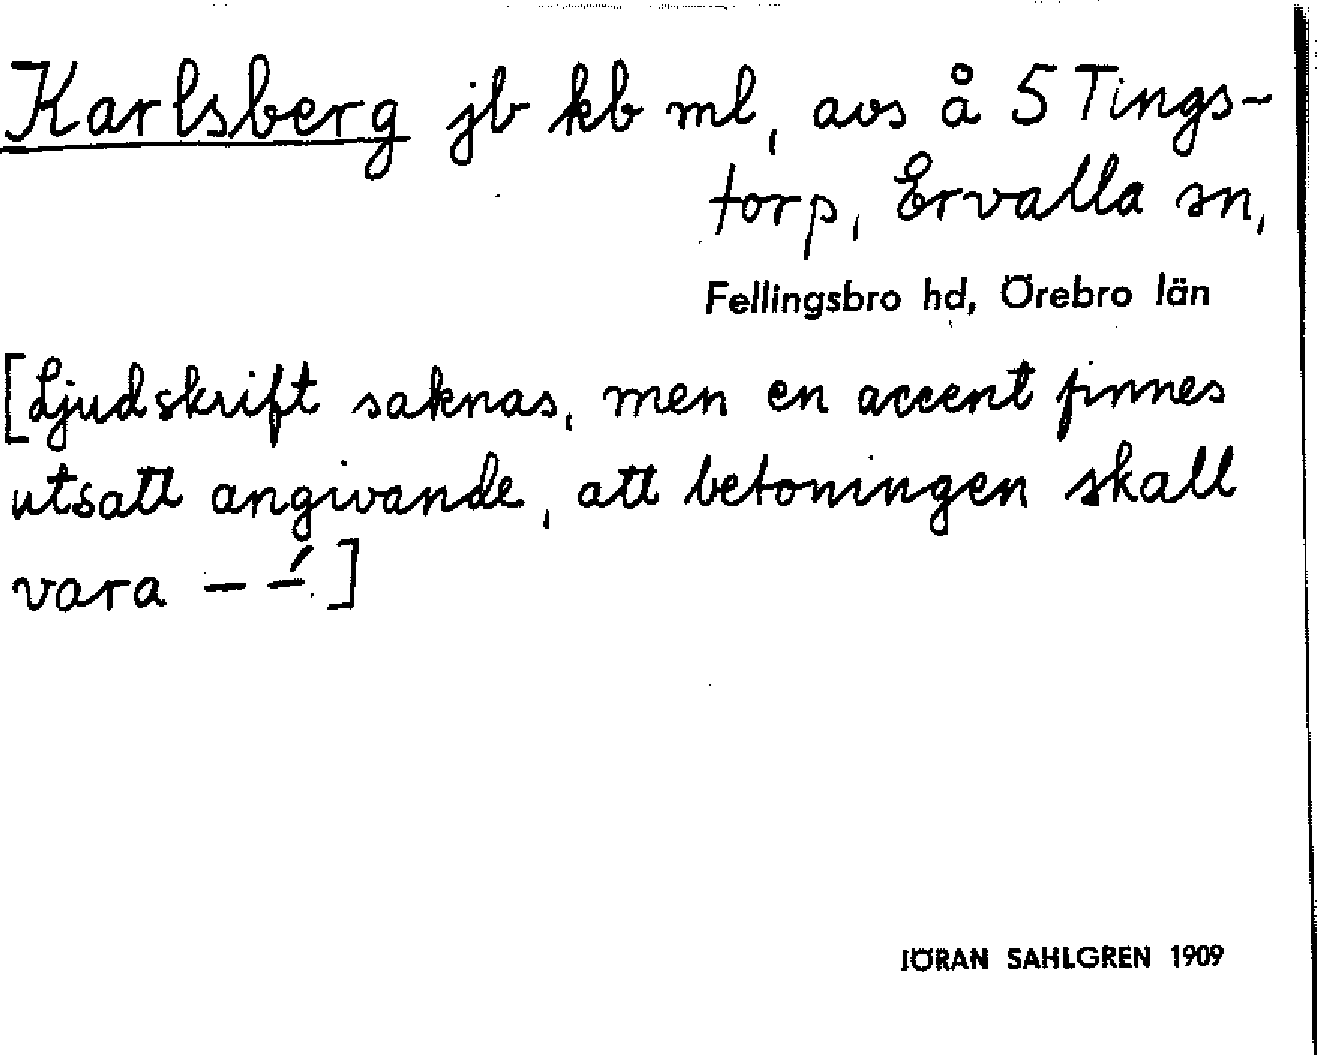 Karlsberg jb kb ml, avs å 5 Tings-
torp, Ervalla sn,
Fellingsbro hd, Örebro län
[Ljudskrift saknas, men en accent finnes
utsatt angivande, att betoningen skall
vara – –́.]
JÖRAN SAHLGREN 1909